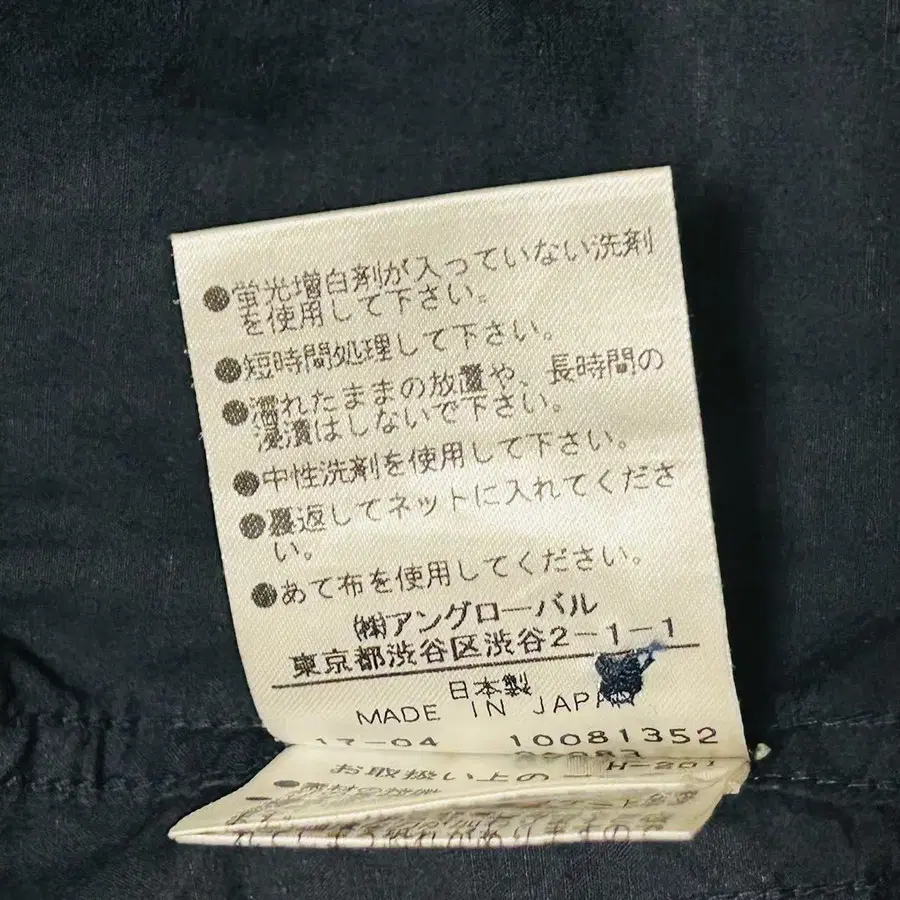 ●蛍光増白剤が入っていない洗剤
を使用して下さい。
●短時間処理して下さい。
●濡れたままの放置や、長時間の
浸漬はしないで下さい。
●中性洗剤を使用して下さい。
●裏返してネットに入れてくださ
い。
●あて布を使用してください。
㈱アングローバル
東京都渋谷区渋谷2-1-1
日本製
MADE IN JAPAN
17-04 10081352
お取扱い上の H-201
れてしまう恐れがありますので